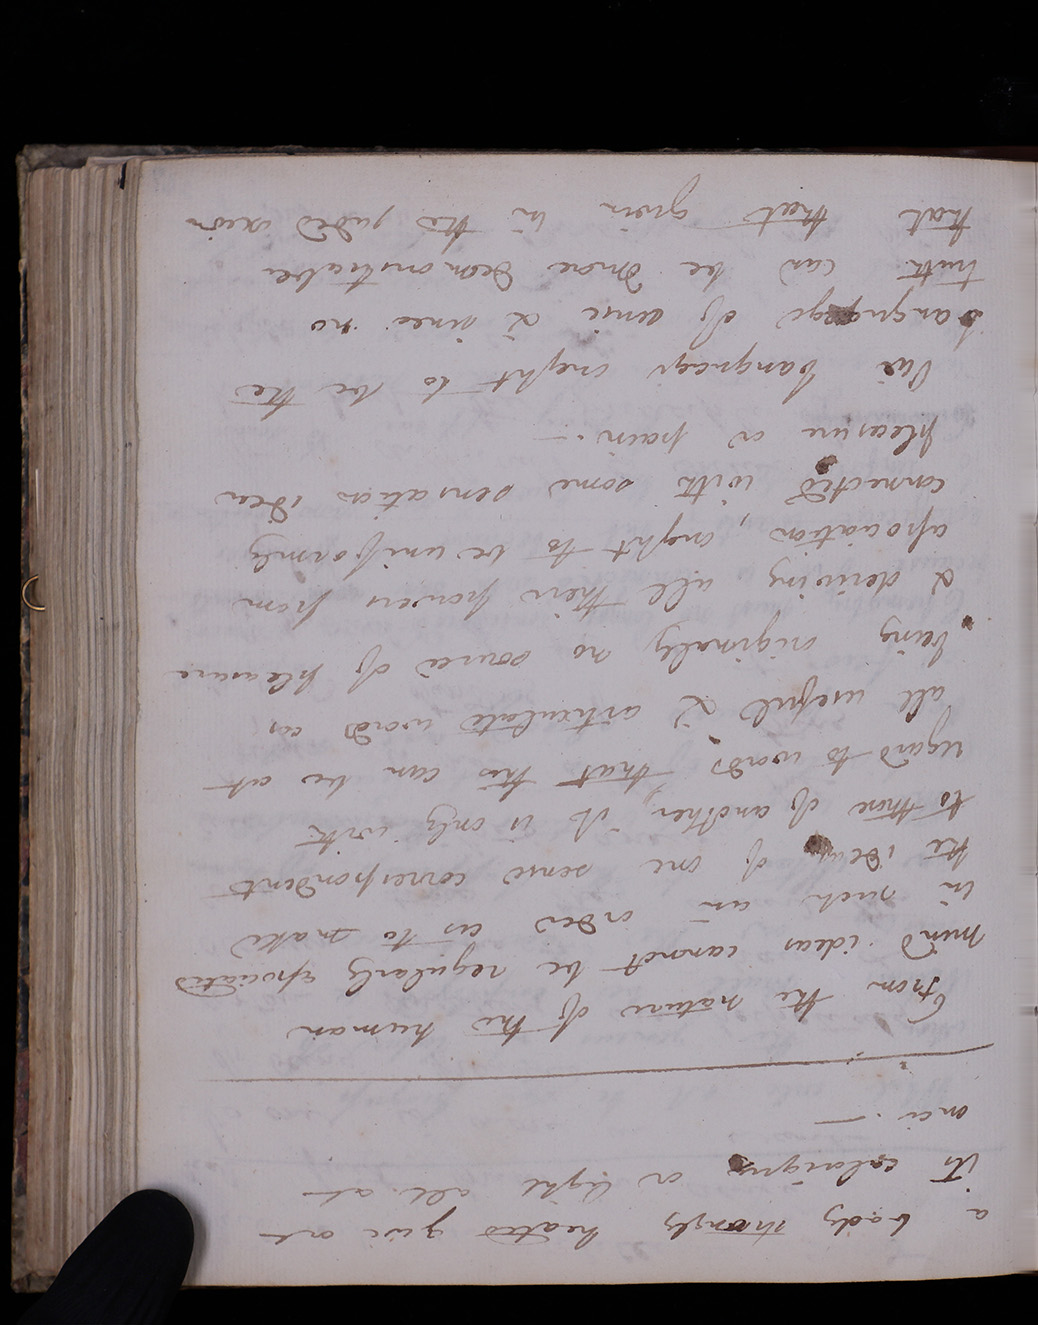 a body strongly heated give out
its calorique or light all at
once. —
From the nature of the human
mind ideas cannot be regularly associated
in such an order as to make
the ideas of one sense correspondent
to those of another, it is only with
regard to words that this can be at
all useful & articulate words as
being originally no source of pleasure
& deriving all their powers from
association, ought to be uniformly
connected with some sensation idea
pleasure or pain. —
Our language ought to be the
Language of sense & since no
truth can be more demonstrable
that that given in the